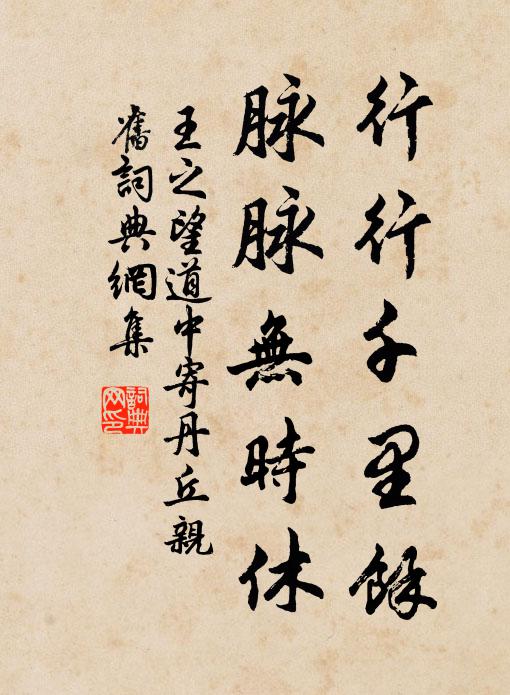 行行千里餘
脉脉無時休
王之望道中寄丹丘親
舊詞典網集
詞典
网印